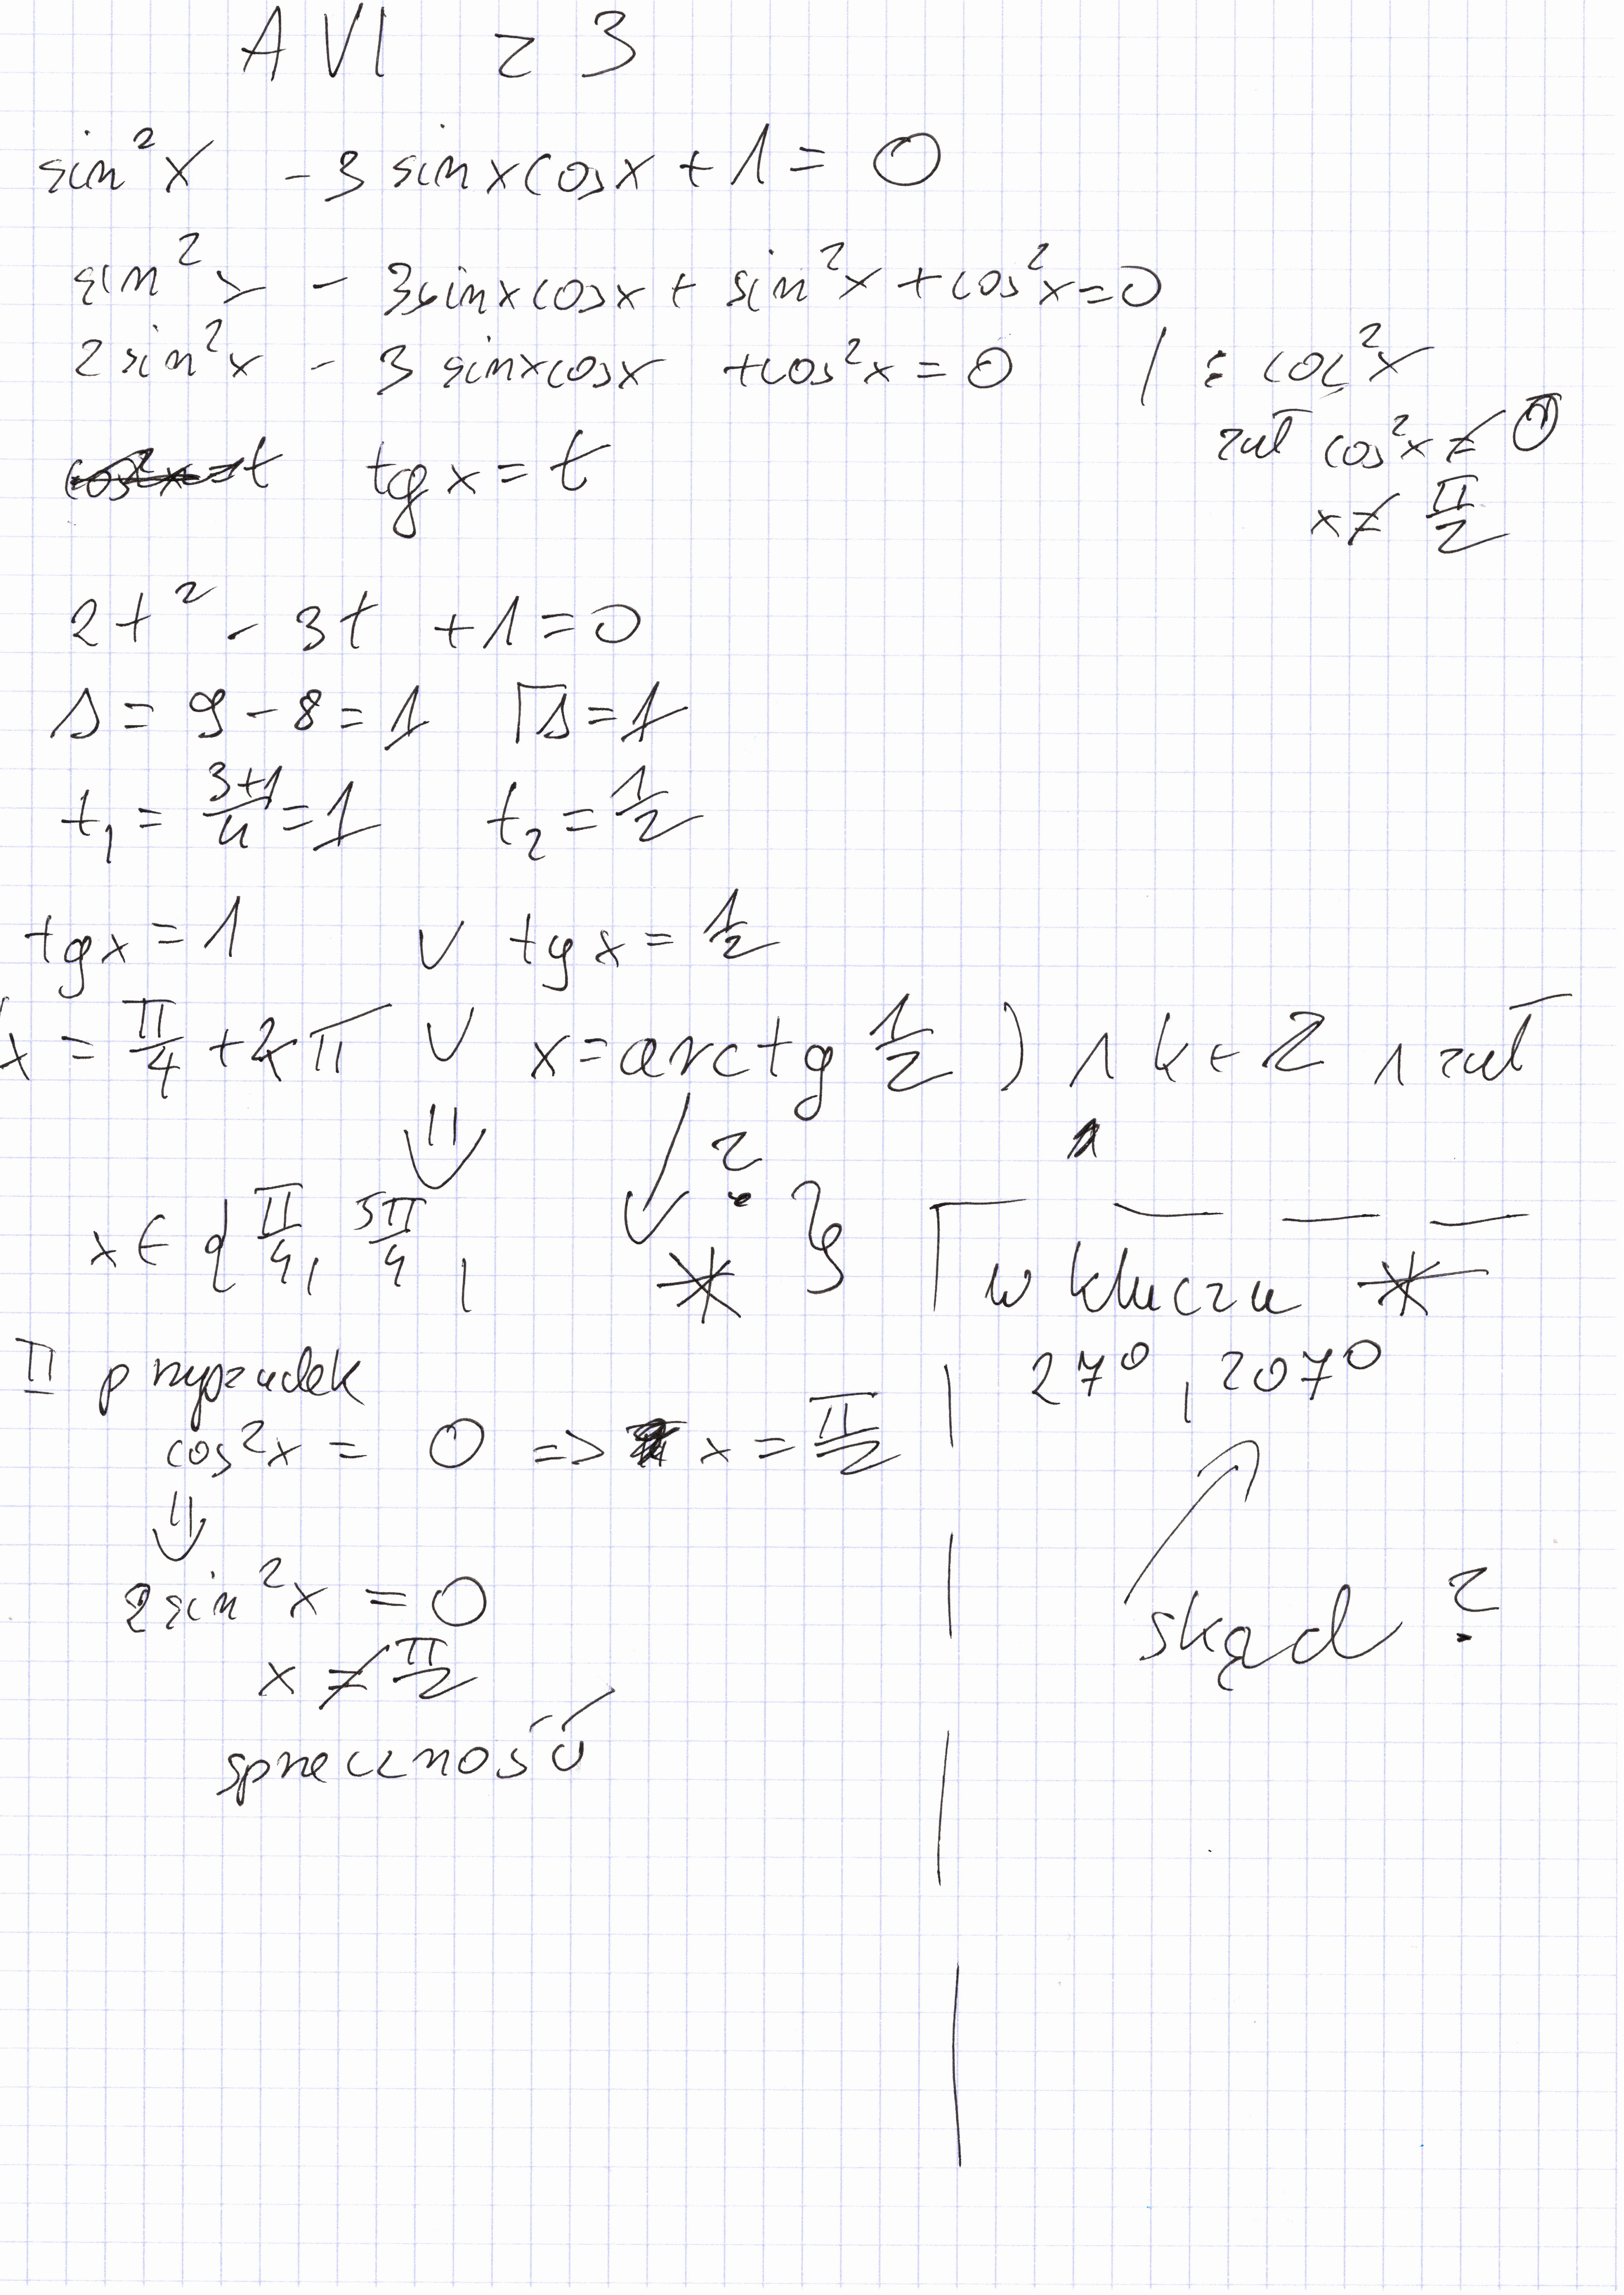 A VI z 3
sin²x - 3 sinxcosx + 1 = 0
sin²x - 3sinxcosx + sin²x + cos²x = 0
2 sin²x - 3 sinxcosx + cos²x = 0 / : cos²x
zał cos²x ≠ 0
cos²x = t tgx = t
x ≠ π/2
2t² - 3t + 1 = 0
Δ = 9 - 8 = 1 √Δ = 1
t₁ = (3+1)/4 = 1 t₂ = 1/2
tgx = 1 ∨ tgx = 1/2
(x = π/4 + kπ ∨ x = arctg 1/2) ∧ k ∈ Z ∧ zał
⇓ ↓ ?
x ∈ { π/4, 5π/4, * }
w kluczu *
27°, 207°
skąd ?
II przypadek
cos²x = 0 => x = π/2
⇓
2sin²x = 0
x ≠ π/2
sprzeczność